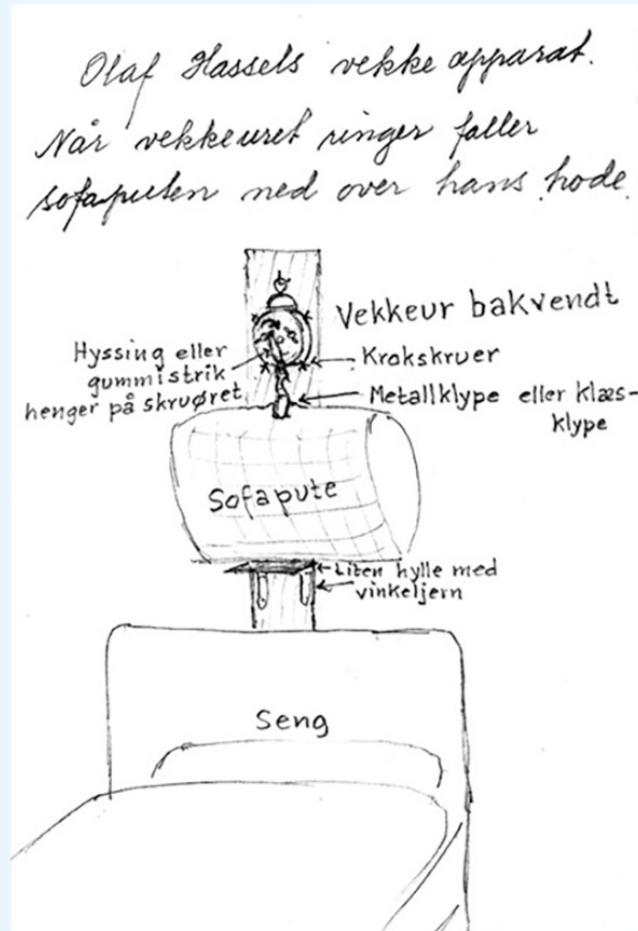 Olaf Hassels vekke apparat.
Når vekkeuret ringer faller
sofaputen ned over hans hode.
Vekkeur bakvendt
Hyssing eller
gummistrik
henger på skruøret
Krokskruer
Metallklype eller klæs-
klype
Sofapute
Liten hylle med
vinkeljern
Seng